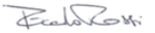 Ricardo Rossi